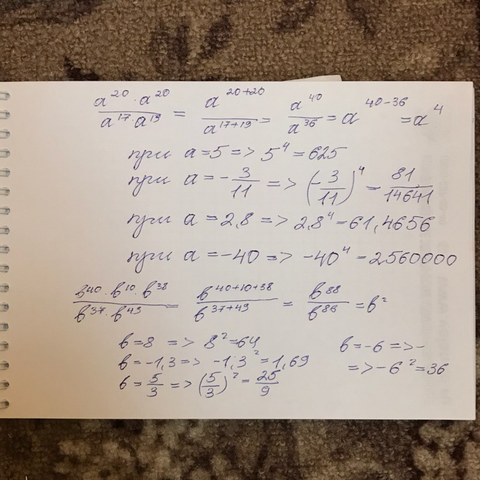 a^20 · a^20 / a^17 a^19 = a^20+20 / a^17+19 = a^40 / a^36 = a^40-36 = a^4
при a=5 => 5^4 = 625
при a = -3/11 => (-3/11)^4 = 81/14641
при a = 2,8 => 2,8^4 = 61,4656
при a = -40 => -40^4 = 2560000
b^40 · b^10 · b^38 / b^37 · b^49 = b^40+10+38 / b^37+49 = b^88 / b^86 = b^2
b=8 => 8^2=64
b=-1,3 => -1,3^2 = 1,69
b = 5/3 => (5/3)^2 = 25/9
b=-6 => -
=> -6^2 = 36